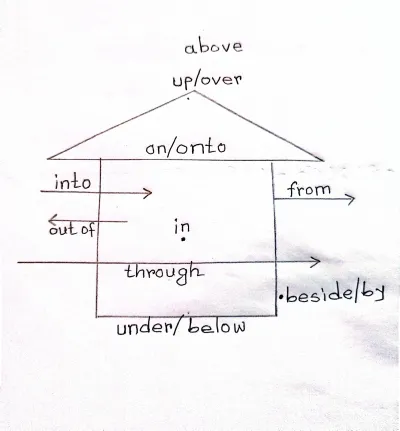 above
up/over
on/onto
into
from
out of
in
through
beside/by
under/below